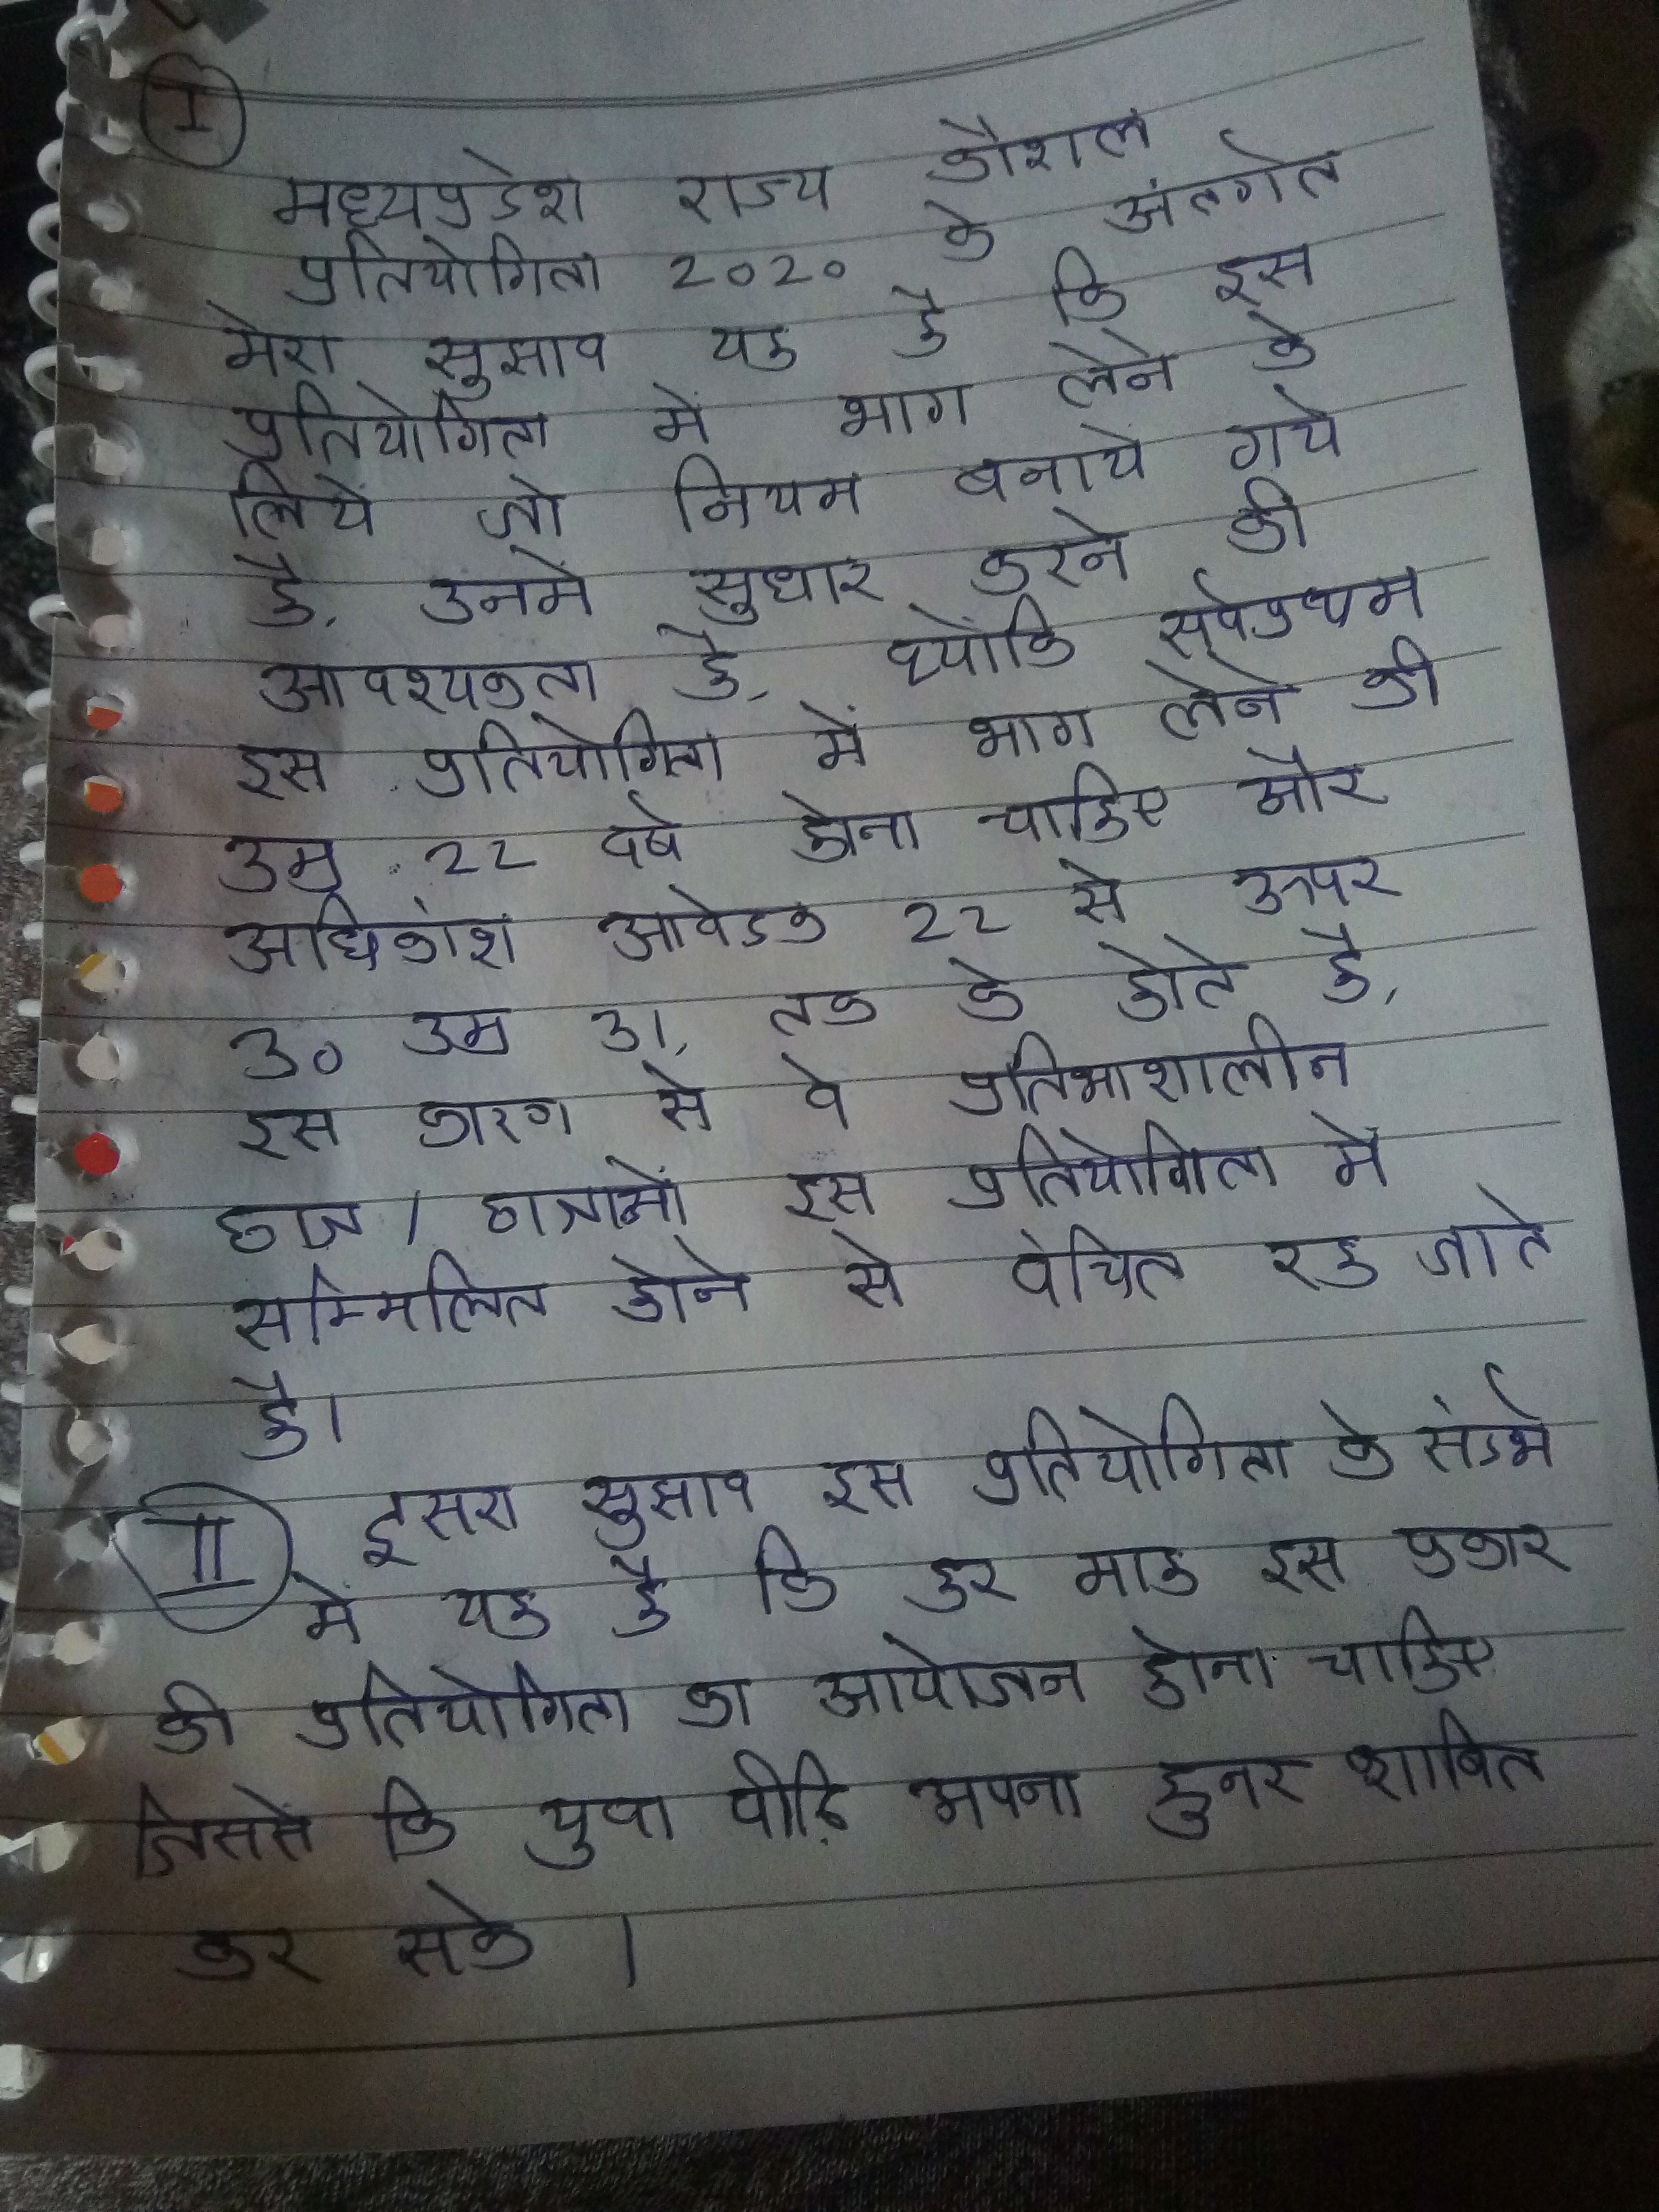 I
मध्यप्रदेश राज्य कौशल
प्रतियोगिता 2020 के अंतर्गत
मेरा सुझाव यह है कि इस
प्रतियोगिता में भाग लेने के
लिये जो नियम बनाये गये
है, उनमें सुधार करने की
आवश्यकता है, क्योंकि सर्वप्रथम
इस प्रतियोगिता में भाग लेने की
उम्र 22 वर्ष होना चाहिए और
अधिकांश आवेदक 22 से ऊपर
30 उम्र 31, तक के होते है,
इस कारण से वे प्रतिभाशालीन
छात्र / छात्राओं इस प्रतियोगिता में
सम्मिलित होने से वंचित रह जाते
है।
II दूसरा सुझाव इस प्रतियोगिता के संदर्भ
में यह है कि हर माह इस प्रकार
की प्रतियोगिता का आयोजन होना चाहिए
जिससे कि युवा पीढ़ि अपना हुनर शाबित
कर सके ।